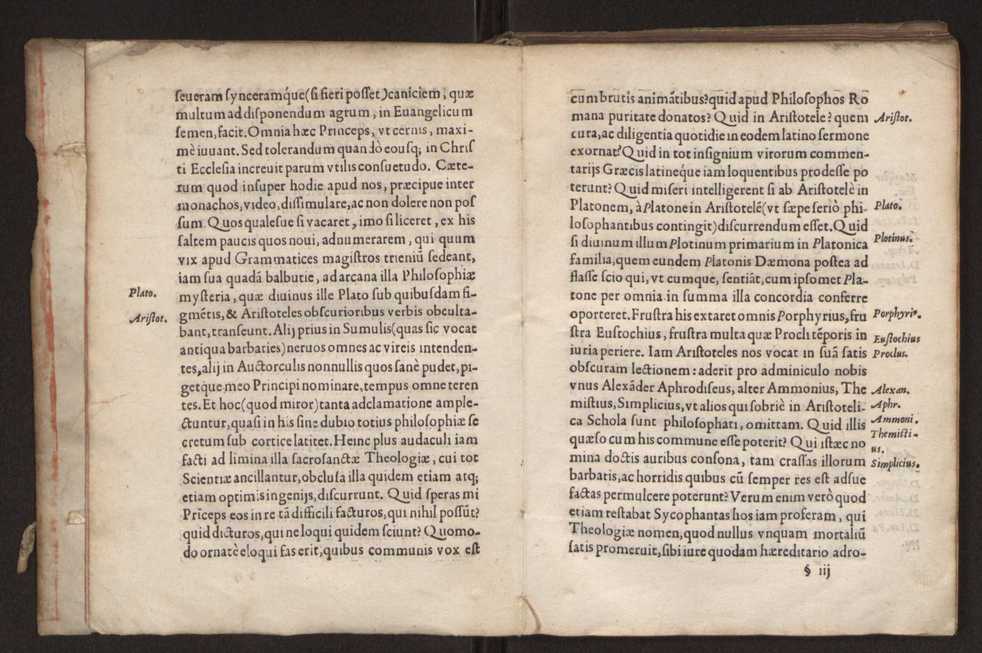 seueram synceramq́ue(si fieri posset)caniciem, quæ
multum ad disponendum agrum, in Euangelicum
semen, facit. Omnia hæc Princeps, vt cernis, maxi-
mè iuuant. Sed tolerandum quandò eousq; in Chris
ti Ecclesia increuit parum vtilis consuetudo. Cæte-
rum quod insuper hodie apud nos, præcipue inter
monachos, video, dissimulare, ac non dolere non pos
sum. Quos qualesue si vacaret, imo si liceret, ex his
saltem paucis quos noui, adnumerarem, qui quum
vix apud Grammatices magistros trieniũ sedeant,
iam sua quadã balbutie, ad arcana illa Philosophiæ
Plato.
mysteria, quæ diuinus ille Plato sub quibusdam fi-
Aristot.
gmẽtis, & Aristoteles obscurioribus verbis obculta-
bant, transeunt. Alij prius in Sumulis(quas sic vocat
antiqua barbaties) neruos omnes ac vireis intenden-
tes, alij in Auctorculis nonnullis quos sanè pudet, pi-
getque meo Principi nominare, tempus omne teren
tes. Et hoc(quod miror)tanta adclamatione ample-
ctuntur, quasi in his sine dubio totius philosophiæ se
cretum sub cortice latitet. Heinc plus audaculi iam
facti ad limina illa sacrosanctæ Theologiæ, cui tot
Scientiæ ancillantur, obclusa illa quidem etiam atq;
etiam optimis ingenijs, discurrunt. Quid speras mi
Prĩceps eos in re tã difficili facturos, qui nihil possũt?
quid dicturos, qui ne loqui quidem sciunt? Quomo-
do ornatè eloqui fas erit, quibus communis vox est
cum brutis animãtibus? quid apud Philosophos Ro
mana puritate donatos? Quid in Aristotele? quem
Aristot.
cura, ac diligentia quotidie in eodem latino sermone
exornat? Quid in tot insignium virorum commen-
tarijs Græcis latineque iam loquentibus prodesse po
terunt? Quid miseri intelligerent si ab Aristotelè in
Platonem, à Platone in Aristotelẽ(vt sæpe seriò phi-
Plato.
losophantibus contingit)discurrendum esset. Quid
si diuinum illum Plotinum primarium in Platonica
Plotinus.
familia, quem eundem Platonis Dæmona postea ad
flasse scio qui, vt cumque, sentiãt, cum ipsomet Pla-
tone per omnia in summa illa concordia conferre
oporteret. Frustra his extaret omnis Porphyrius, fru
Porphyriº.
stra Eustochius, frustra multa quæ Procli tẽporis in
Eustochius
iuria periere. Iam Aristoteles nos vocat in suã satis
Proclus.
obscuram lectionem: aderit pro adminiculo nobis
vnus Alexãder Aphrodiseus, alter Ammonius, The
Alexan.
mistius, Simplicius, vt alios qui sobriè in Aristoteli-
Aphr.
ca Schola sunt philosophati, omittam. Quid illis
Ammoni.
quæso cum his commune esse poterit? Qui istæc no
Themisti-
us.
mina doctis auribus consona, tam crassas illorum
Simplicius.
barbatis, ac horridis quibus cũ semper res est adsue
factas permulcere poterunt? Verum enim verò quod
etiam restabat Sycophantas hos iam proferam, qui
Theologiæ nomen, quod nullus vnquam mortaliũ
satis promeruit, sibi iure quodam hæreditario adro-
§ iij